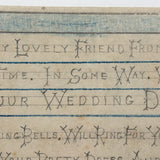 y Lovely Friend Fro
Time. In Some Way, 
ur Wedding D
ng Bells, Will Ring For Y